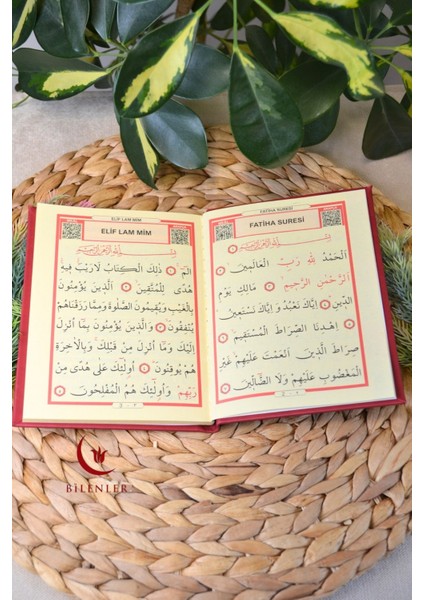 FATİHA SURESİ
FATİHA SURESİ
بِسْمِ اللّٰهِ الرَّحْمٰنِ الرَّحِيمِ
اَلْحَمْدُ لِلّٰهِ رَبِّ الْعَالَمِينَ
اَلرَّحْمٰنِ الرَّحِيمِ مَالِكِ يَوْمِ
الدِّينِ اِيَّاكَ نَعْبُدُ وَاِيَّاكَ نَسْتَعِينُ
اِهْدِنَا الصِّرَاطَ الْمُسْتَقِيمَ
صِرَاطَ الَّذِينَ اَنْعَمْتَ عَلَيْهِمْ غَيْرِ
الْمَغْضُوبِ عَلَيْهِمْ وَلَا الضَّالِّينَ
ELİF LAM MİM
ELİF LAM MİM
بِسْمِ اللّٰهِ الرَّحْمٰنِ الرَّحِيمِ
الٓمٓ ذٰلِكَ الْكِتَابُ لَا رَيْبَ فِيهِ
هُدًى لِلْمُتَّقِينَ اَلَّذِينَ يُؤْمِنُونَ
بِالْغَيْبِ وَيُقِيمُونَ الصَّلٰوةَ وَمِمَّا رَزَقْنَاهُمْ
يُنْفِقُونَ وَالَّذِينَ يُؤْمِنُونَ بِمَا اُنْزِلَ
اِلَيْكَ وَمَا اُنْزِلَ مِنْ قَبْلِكَ وَبِالْاٰخِرَةِ
هُمْ يُوقِنُونَ اُولٰئِكَ عَلٰى هُدًى مِنْ
رَبِّهِمْ وَاُولٰئِكَ هُمُ الْمُفْلِحُونَ
BİLENLER